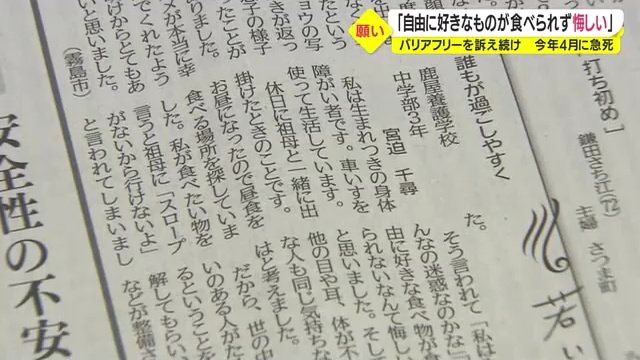 願い
「自由に好きなものが食べられず悔しい」
バリアフリーを訴え続け 今年4月に急死
打ち初め」
鎌田さち江(72)
主婦 さつま町
誰もが過ごしやすく
鹿屋養護学校
中学部3年
宮迫 千尋
私は生まれつきの身体
障がい者です。車いすを
使って生活しています。
休日に祖母と一緒に出
掛けたときのことです。
お昼になったので昼食を
食べる場所を探していま
した。私が食べたい物を
言うと祖母に「スロープ
がないから行けないよ」
と言われてしまいまし
た。
そう言われて「私は
んなの迷惑なのかな
由に好きな食べ物が
られないなんて悔し
と思いました。そして
他の目や耳、体が不
な人も同じ気持ちな
はと考えました。
だから、世の中
いのある人がた
るということを
解してもらい、
などが整備さ
若い
たという
ョウの写
きが返っ
息子の様子
てることが
メが本当に幸
てくれたよう
けからとてもあ
いと思いました。
(霧島市)
安全性の不安